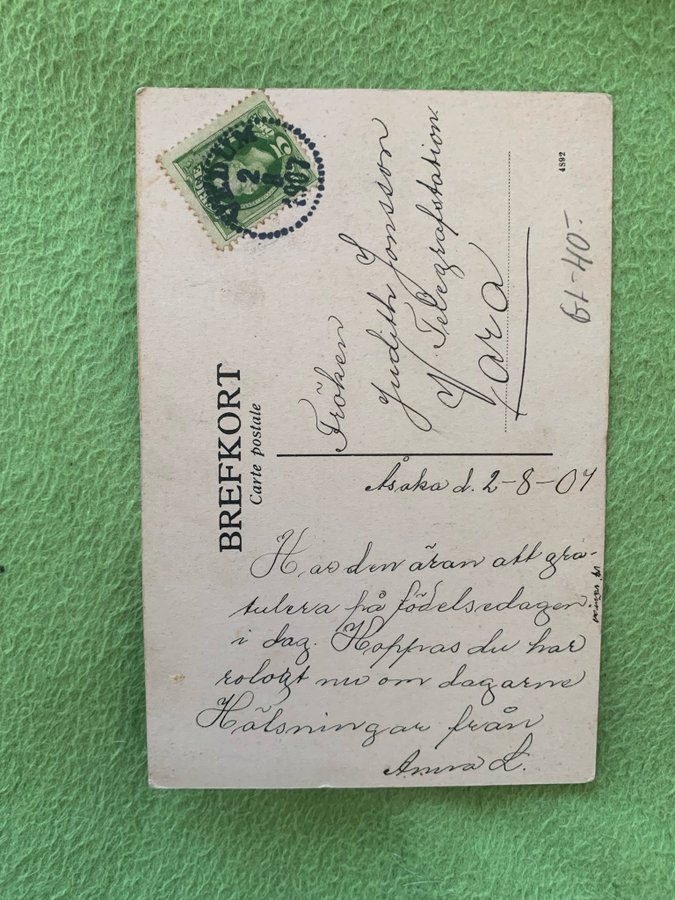 BREFKORT
Carte postale
Fröken
Judith Jonsson
Telegrafstation.
Vara
4892
61-40.-
Åsaka d. 2-8-07
Har den äran att gra-
tulera på födelsedagen
i dag. Hoppas du har
roligt nu om dagarne
Hälsningar från
Anna L.
2
1907
5